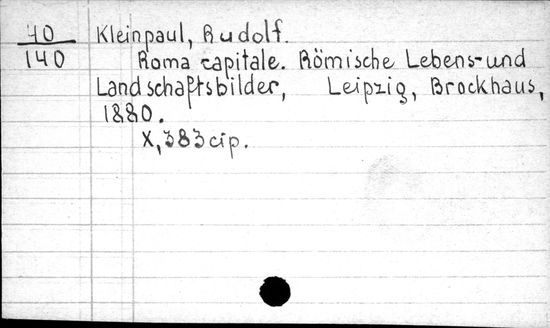 40 Kleinpaul, Rudolf.
140 Roma capitale. Römische Lebens- und
Landschaftsbilder, Leipzig, Brockhaus,
1880.
X, 383 cip.